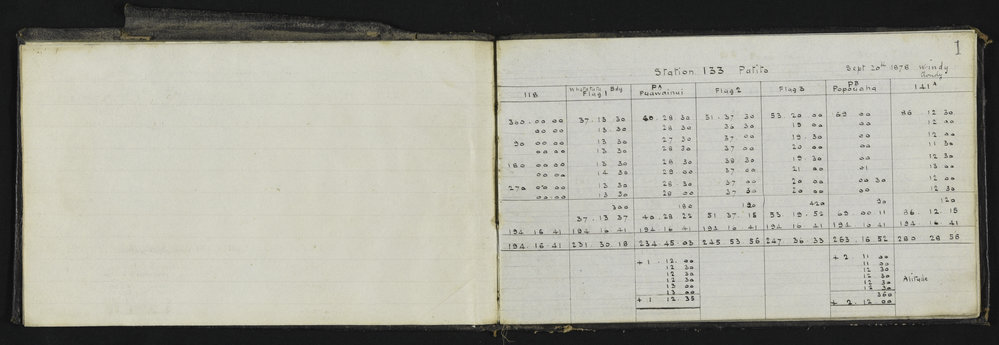 1
Station 133 Patito Sept 20th 1878 Windy
Cloudy
118 Flag 1 Bdy PA Puawainui Flag 2 Flag 3 PB Popouaha 141A
360.00.00 37.13.30 40.28.30 51.37.30 53.20.00 69.00 86.12.30
00.00 13.30 28.30 36.30 19.00 00 12.00
90.00.00 13.30 27.30 37.00 19.30 00 12.00
00.00 13.30 28.30 37.00 20.00 00 11.30
180.00.00 13.30 28.30 38.30 19.30 00 12.30
00.00 14.30 29.00 37.00 21.00 01 13.00
270.00.00 13.30 28.30 37.00 20.00 00.30 12.00
00.00 13.30 28.00 37.30 20.00 00 12.30
300 180 120 420 90 120
37.13.37 40.28.22 51.37.15 53.19.52 69.00.11 86.12.15
194.16.41 194.16.41 194.16.41 194.16.41 194.16.41 194.16.41 194.16.41
194.16.41 231.30.18 234.45.03 245.53.56 247.36.33 263.16.52 280.28.56
+1.12.00 +2 11 00
12 30 11 00
12 30 12 30
12 30 12 30
13 00 12 30
13 00 12 30
360
+1 12 35 +2.12 00
Altitude